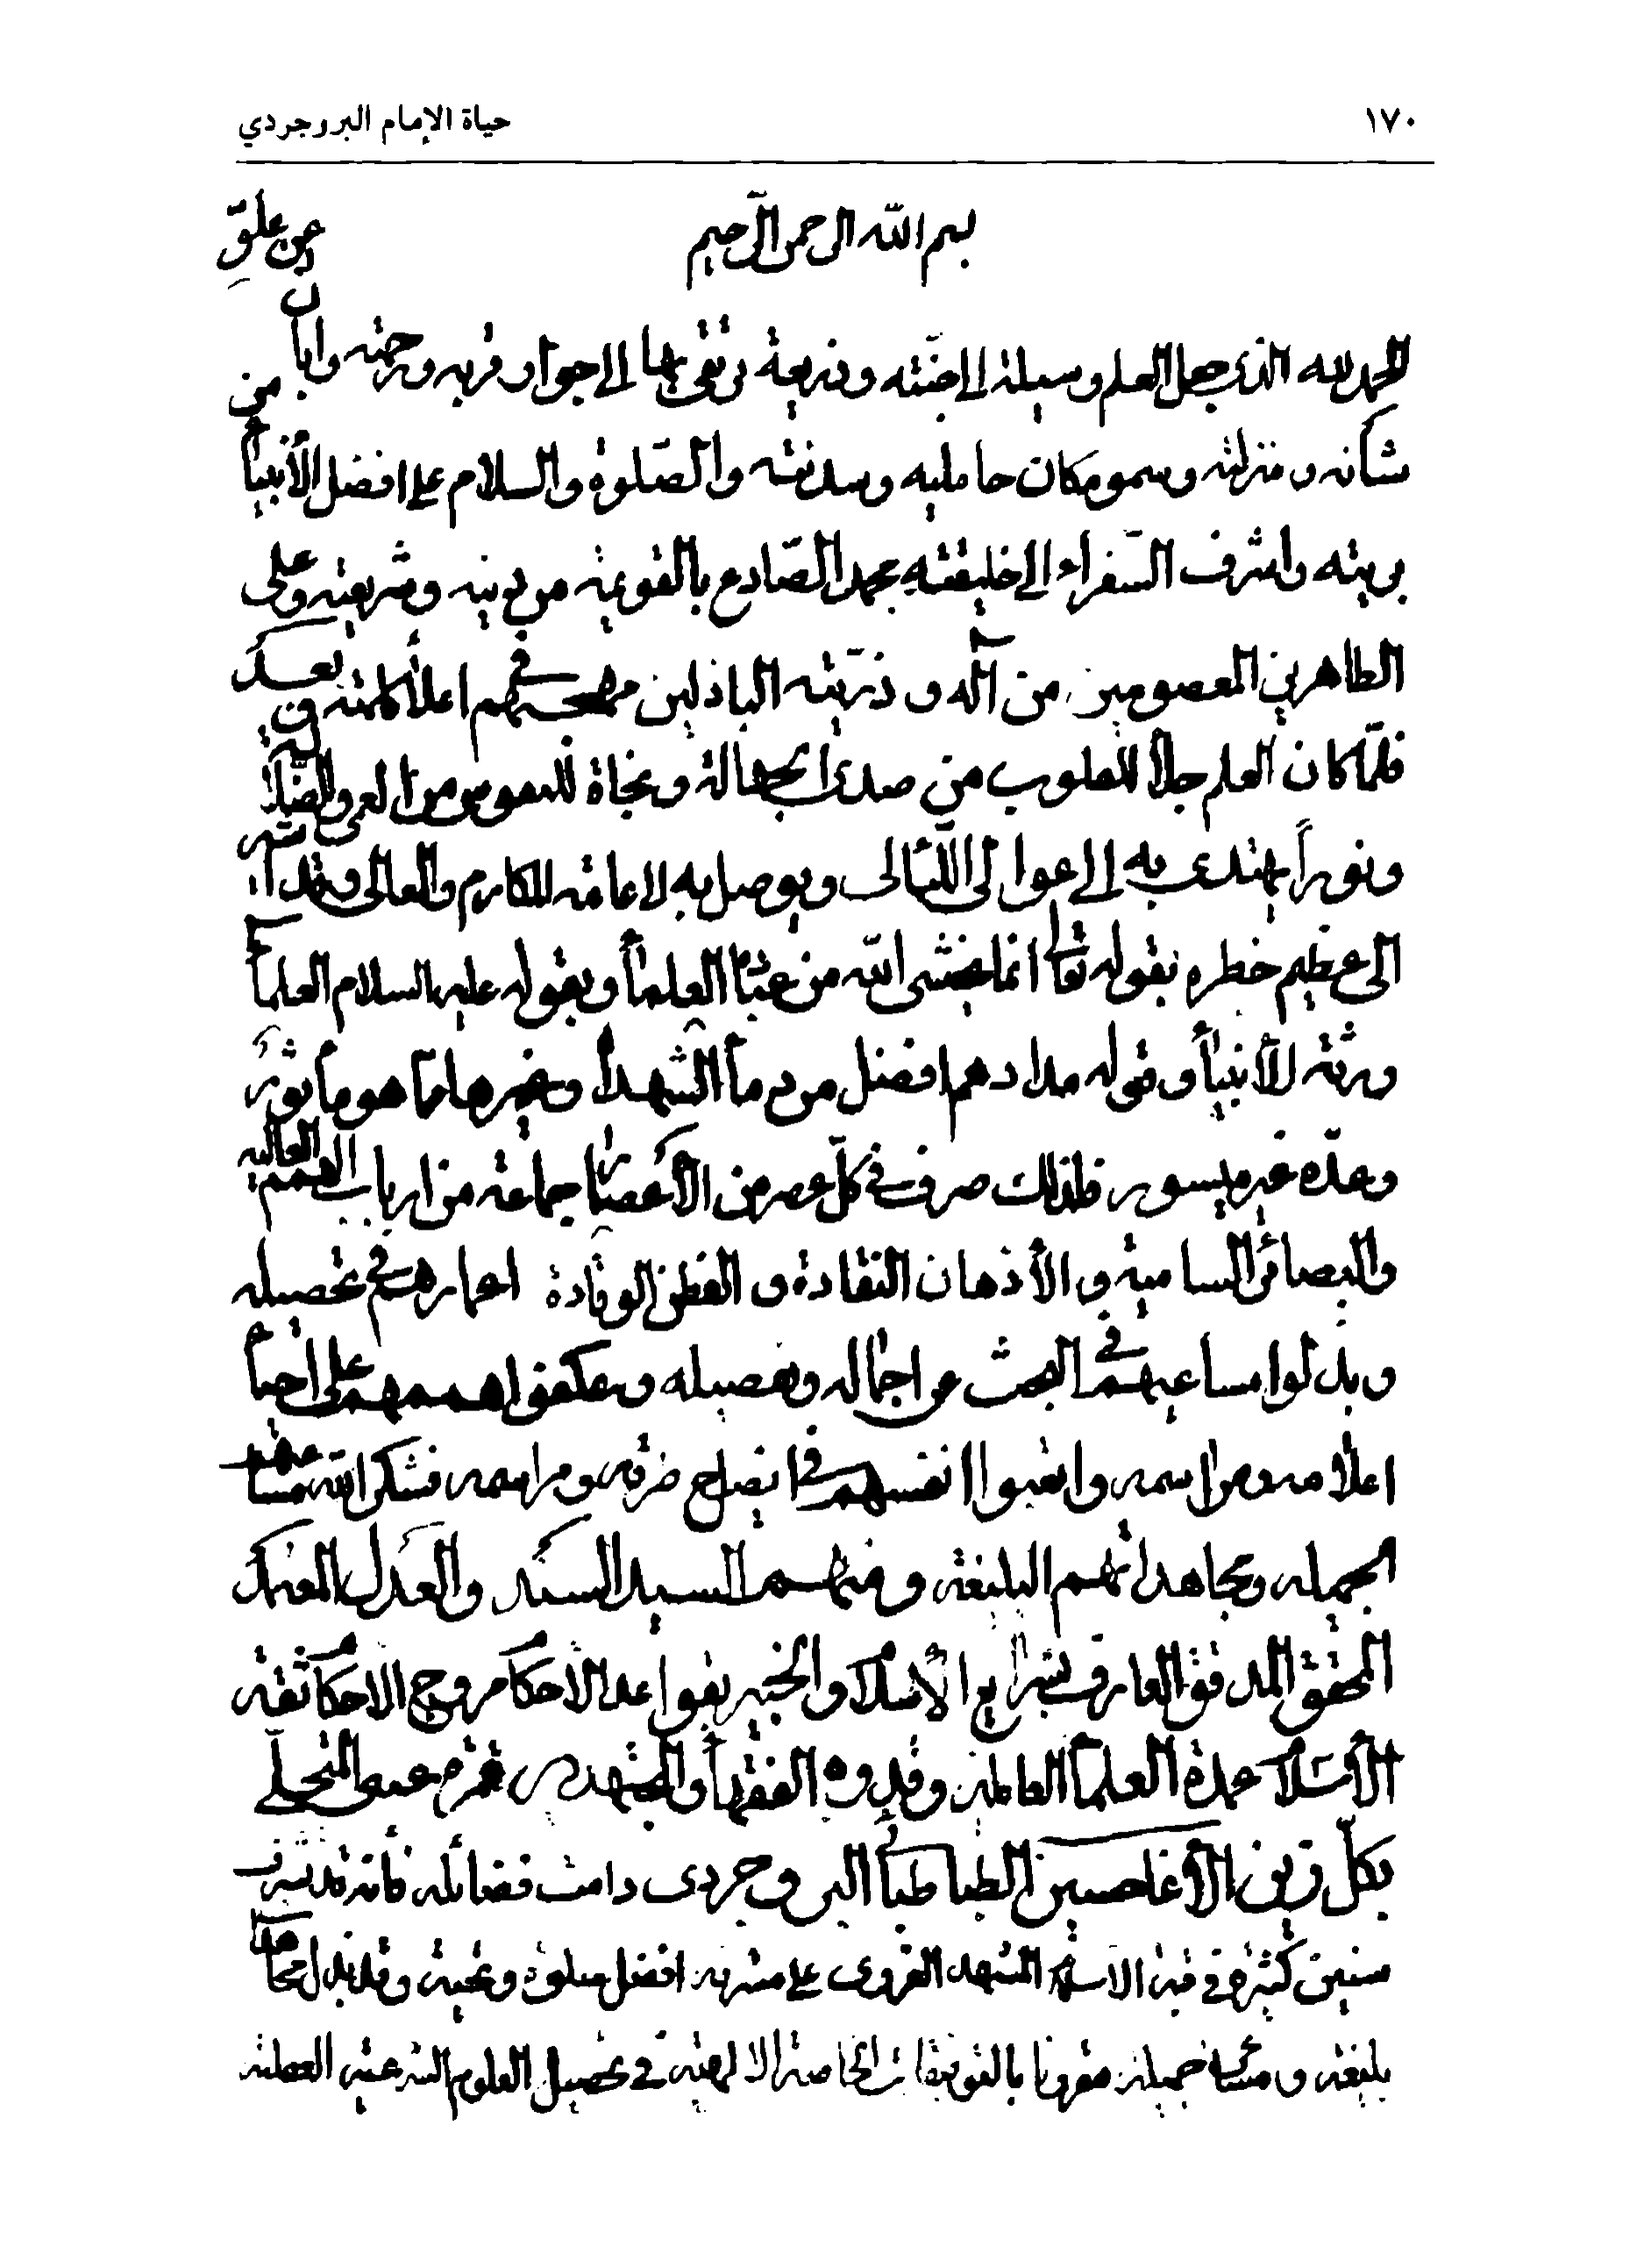 ١٧٠
حياة الإمام البروجردي
بسم الله الرحمن الرحيم
الحمد لله الذى جعل العلم وسيلة الى جنّته وذريعة يرتقى بها الى جوار قربه ورحمته وابان عن علوّ
شأنه ومنزلته وسمو مكان حامليه وسدنته والصّلوة والسلام على افضل الأنبياء من
بريته واشرف السّفراء الى خليقته محمد الصّادع بالقويمة من دينه وشريعته وعلى
الطاهرين المعصومين من آله وذرّيّته الباذلين مهجهم فى اعلاء كلمته وبعد
فلمّا كان العلم جلاء للقلوب من صدى الجهالة ونجاة للنفوس من العمى والضّلالة
ونوراً يهتدى به الى عوالى اللّئالى ويوصل به لا عامة المكارم والمعالى وقد اشير
الى عظيم خطره بقوله تعالى انما يخشى الله من عباده العلماء وبقوله عليه السلام العلماء
ورثة الأنبياء وقوله مدادهم افضل من دماء الشهداء وغيرها ممّا هو مأثور
وعدّه غير ميسور فلذلك صرف فى كلّ عصر من الأعصار جماعة من ارباب الهمم العالية
والبصائر السامية والأذهان النقادة والفطن الوقادة اعمارهم فى تحصيله
وبذلوا مساعيهم فى البحث عن اجماله وتفصيله وعكفوا هممهم على احياء
اعلامه ومراسمه واتعبوا انفسهم فى ايضاح ومراسمه فشكر الله مساعيهم
الجميله ومجاهداتهم البليغة ومنهم السيد السند والعدل المعتمد
المحقق المدقق العارف بشرايع الاسلام والخبير بقواعد الأحكام مروج الاحكام ثقة
الأسلام عمدة العلماء العاملين وقدوه الفقهاء والمجتهدين المتحلّى
بكلّ زين الآغا حسين الطباطبائى البروجردى دامت فضائله فأنه قد تشرف
سنين كثيرة فى المشهد الغروى على مشرفه افضل صلوة وتحية وقد بذل
بليغة ومساع جميلة مقرونا بالتوفيقات الخاصة الالهية فى تحصيل العلوم الشرعية العقلية